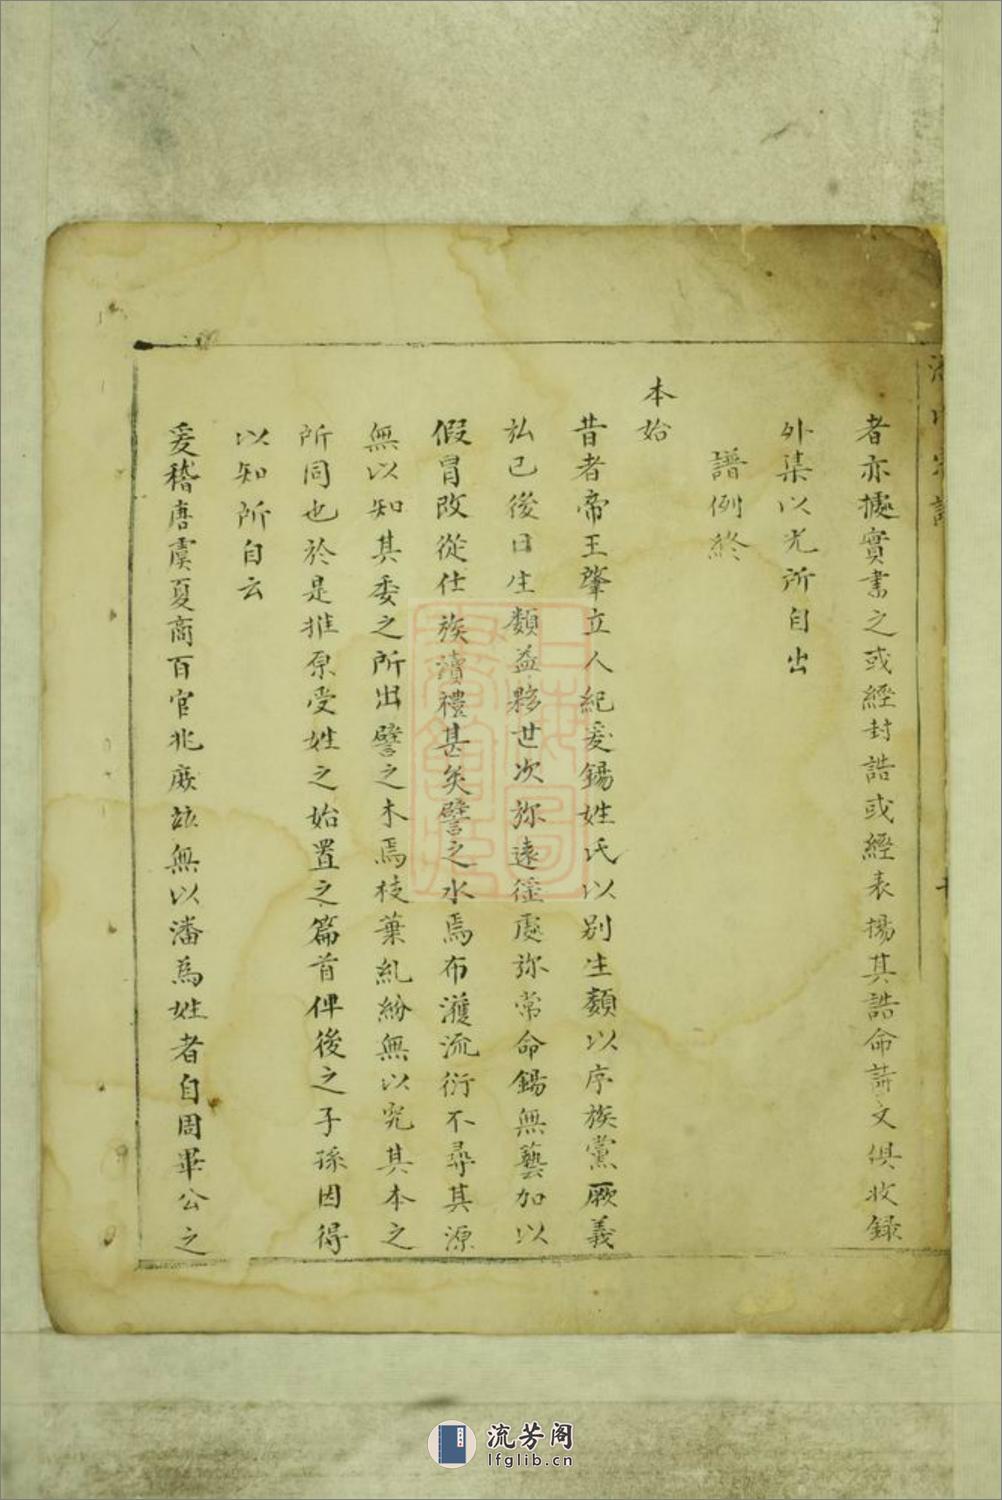 者亦據實書之或經封誥或經表揚其誥命詩文俱收錄
外集以光所自出
譜例終
本始
昔者帝王肇立人紀爰錫姓氏以別生類以序族黨厥義
弘已後日生類益夥世次弥遠徙處弥常命錫無藝加以
假冒改從仕族瀆禮甚矣譬之水焉布濩流衍不尋其源
無以知其委之所出譬之木焉枝葉糺紛無以究其本之
所同也於是推原受姓之始置之篇首俾後之子孫因得
以知所自云
爰稽唐虞夏商百官兆庶竝無以潘為姓者自周畢公之
流芳阁
lfglib.cn